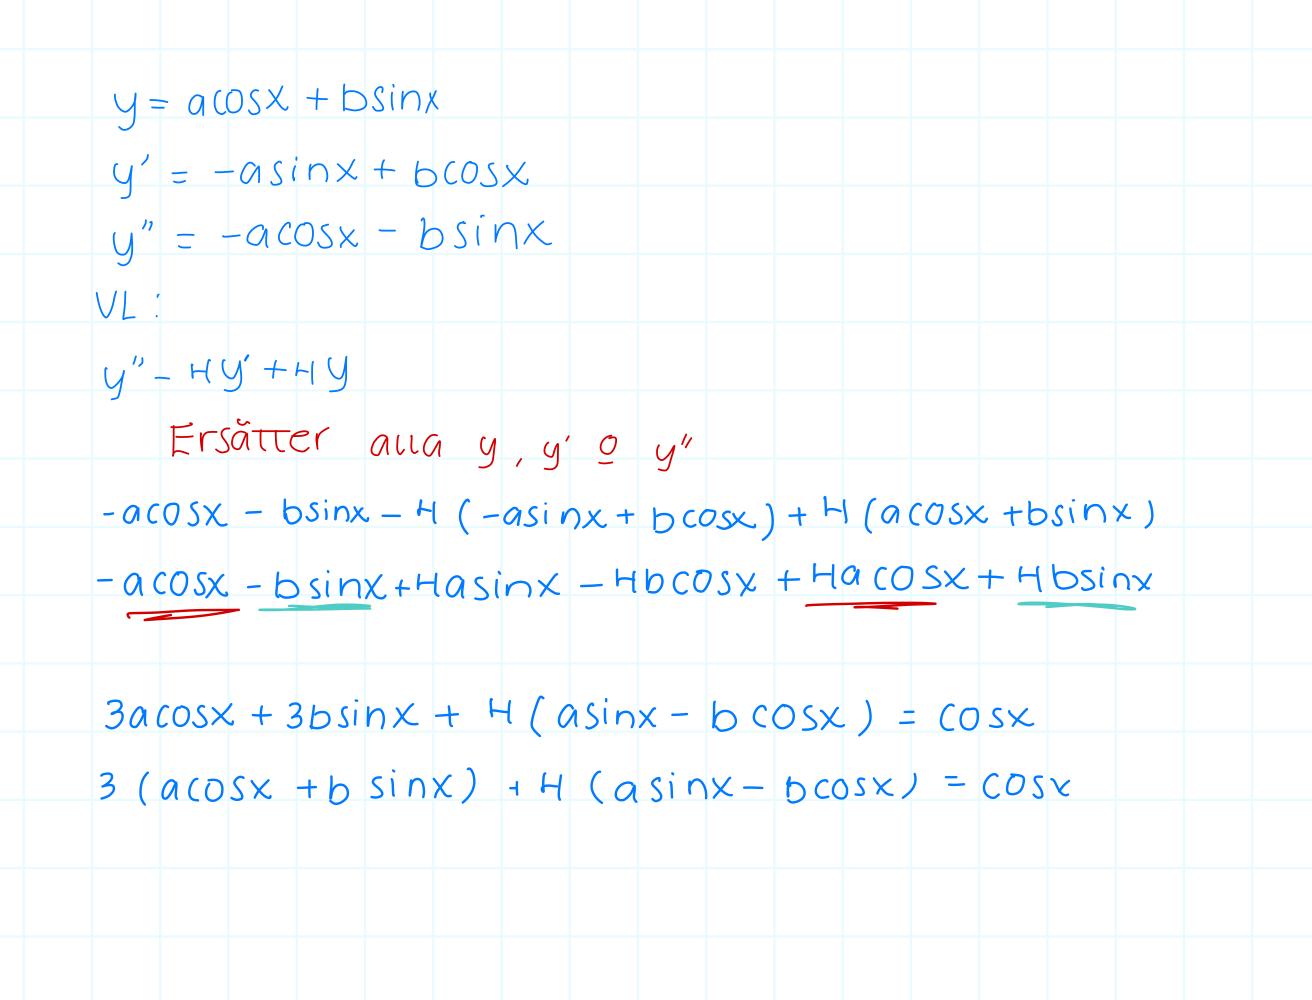 y = acosx + bsinx
y' = -asinx + bcosx
y" = -acosx - bsinx
VL:
y" - 4y' + 4y
Ersätter alla y, y' o y"
-acosx - bsinx - 4(-asinx + bcosx) + 4(acosx + bsinx)
-acosx - bsinx + 4asinx - 4bcosx + 4acosx + 4bsinx
3acosx + 3bsinx + 4(asinx - bcosx) = cosx
3(acosx + bsinx) + 4(asinx - bcosx) = cosx